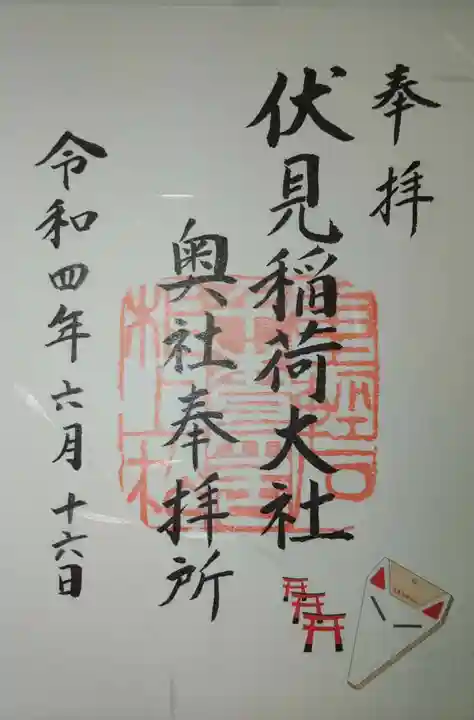 奉拝
伏見稲荷大社
奥社奉拝所
令和四年六月十六日